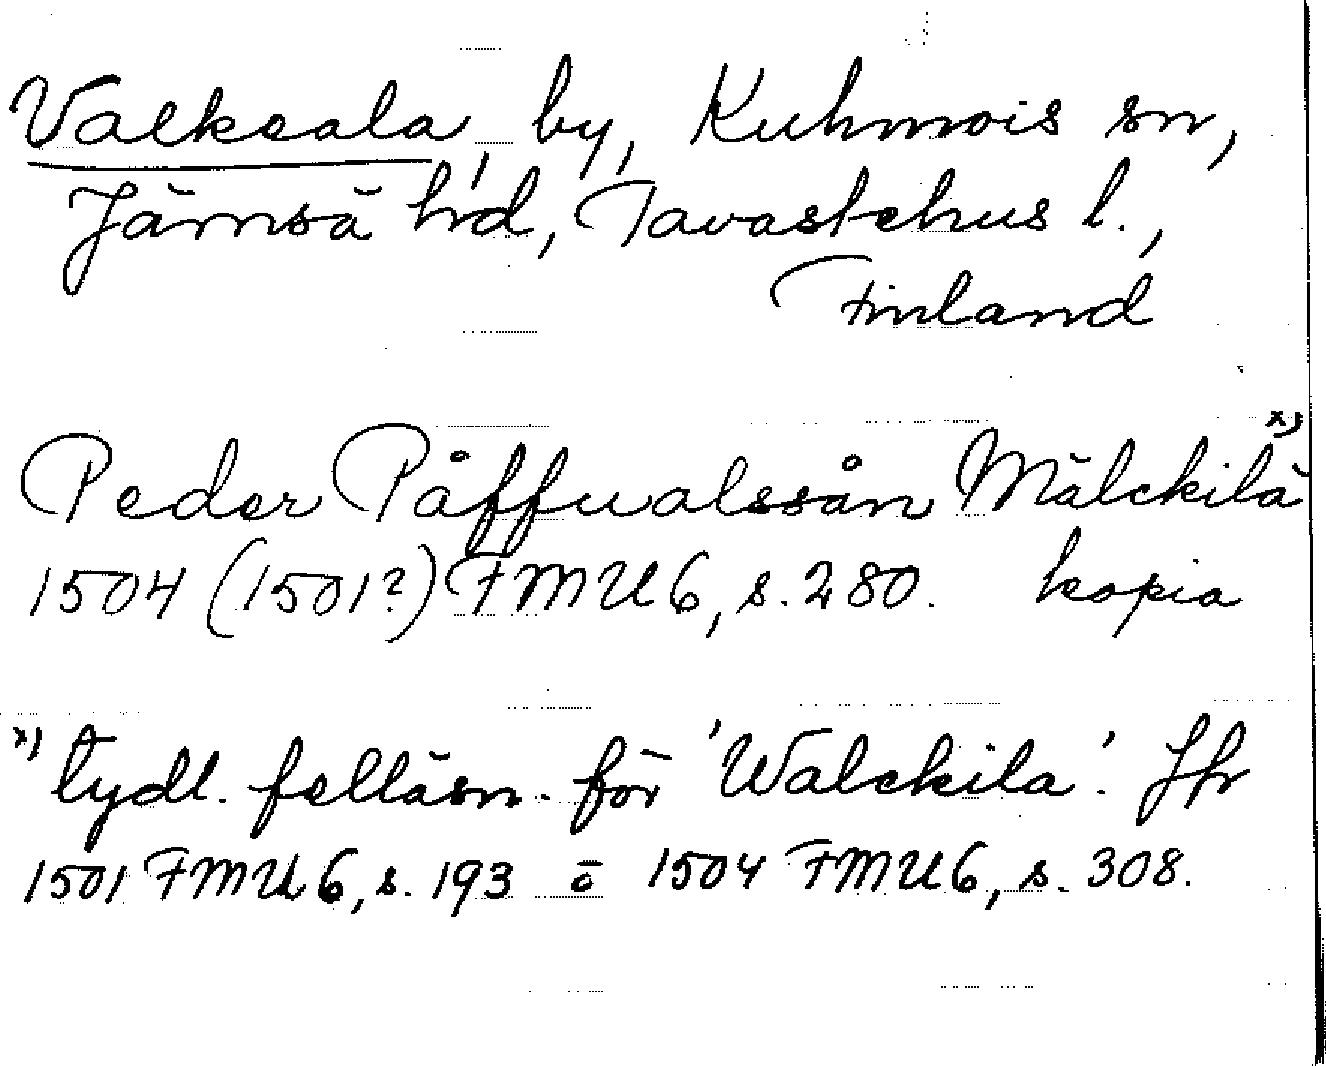 Valkeala, by, Kuhmois sn,
Jämsä hd, Tavastehus l.,
Finland
Peder Påffualssån Mälckilä x)
1504 (1501?) FMU 6, s. 280. kopia
x) tydl. felläsn. för 'Walckila'. Jfr
1501 FMU 6, s. 193 o 1504 FMU 6, s. 308.